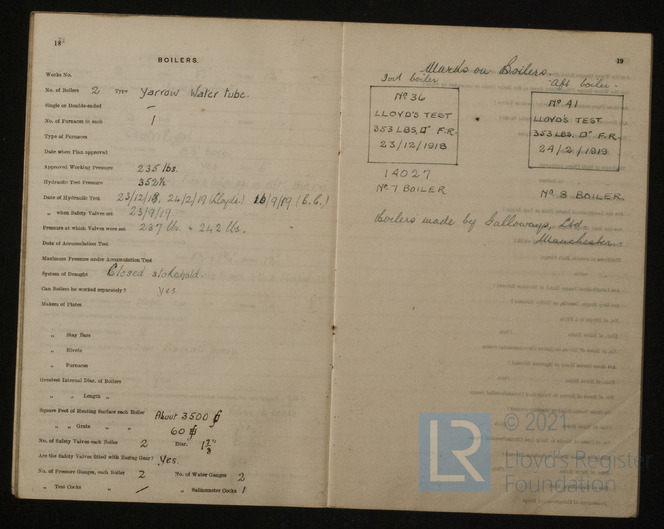 18
BOILERS.
Works No.
No. of Boilers 2 Type Yarrow Water tube.
Single or Double-ended —
No. of Furnaces in each 1
Type of Furnaces
Date when Plan approved
Approved Working Pressure 235 lbs.
Hydraulic Test Pressure 352½
Date of Hydraulic Test 23/12/18, 24/2/19 (Lloyds) 16/9/19
„ when Safety Valves set 23/9/19
Pressure at which Valves were set 237 lbs. & 242 lbs.
Date of Accumulation Test
Maximum Pressure under Accumulation Test
System of Draught Closed stokehold.
Can Boilers be worked separately? yes
Makers of Plates
„ Stay Bars
„ Rivets
„ Furnaces
Greatest Internal Diam. of Boilers
„ „ Length „
Square Feet of Heating Surface each Boiler About 3500
„ „ Grate „ „ 60
No. of Safety Valves each Boiler 2 Diam.
Are the Safety Valves fitted with Easing Gear? Yes.
No. of Pressure Gauges, each Boiler 2 No. of Water Gauges 2
„ Test Cocks „ — „ Salinometer Cocks 1
19
Marks on Boilers.
Port boiler
Aft boiler.
No 36
LLOYD'S TEST
353 LBS. □" F.R.
23/12/1918
No 41
LLOYD'S TEST
353 LBS. □" F.R.
24/2/1919
14027
No 7 BOILER
No 8 BOILER.
Boilers made by Galloways, Ltd
Manchester.
LR
© 2021
Lloyd's Register
Foundation